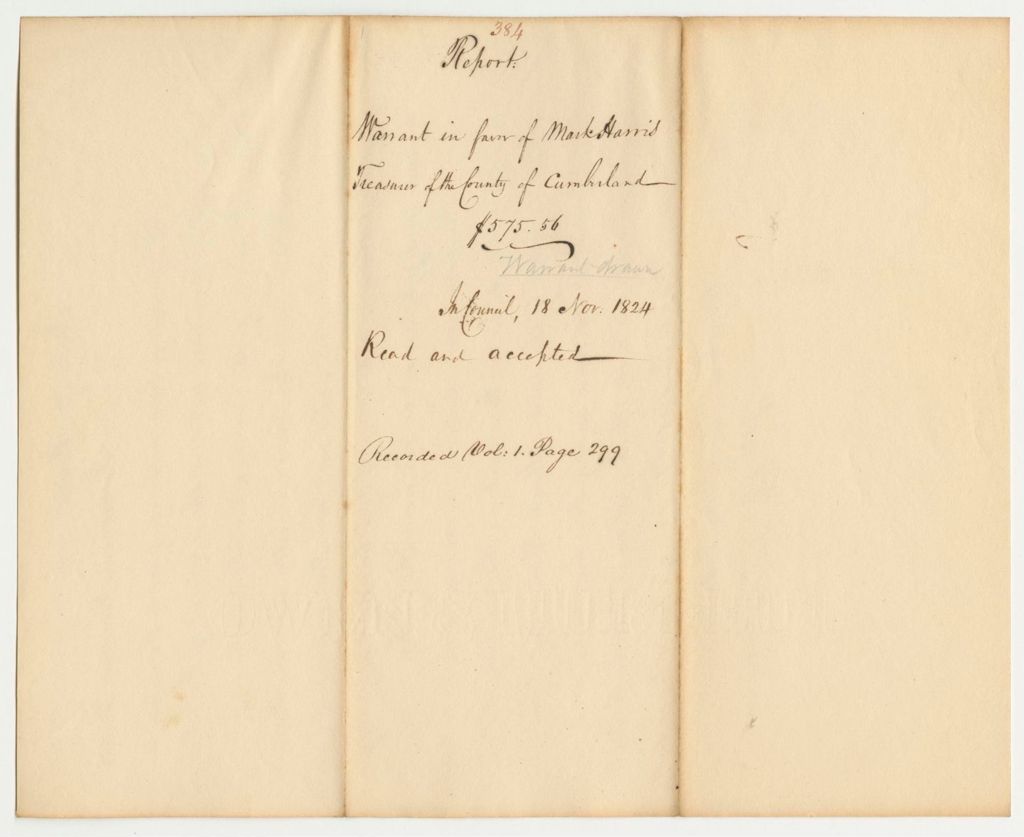 384
Report.
Warrant in favor of Mark Harris
Treasurer of the County of Cumberland
$575.56
Warrant drawn
In Council, 18 Nov. 1824
Read and accepted
Recorded Vol: 1. Page 299